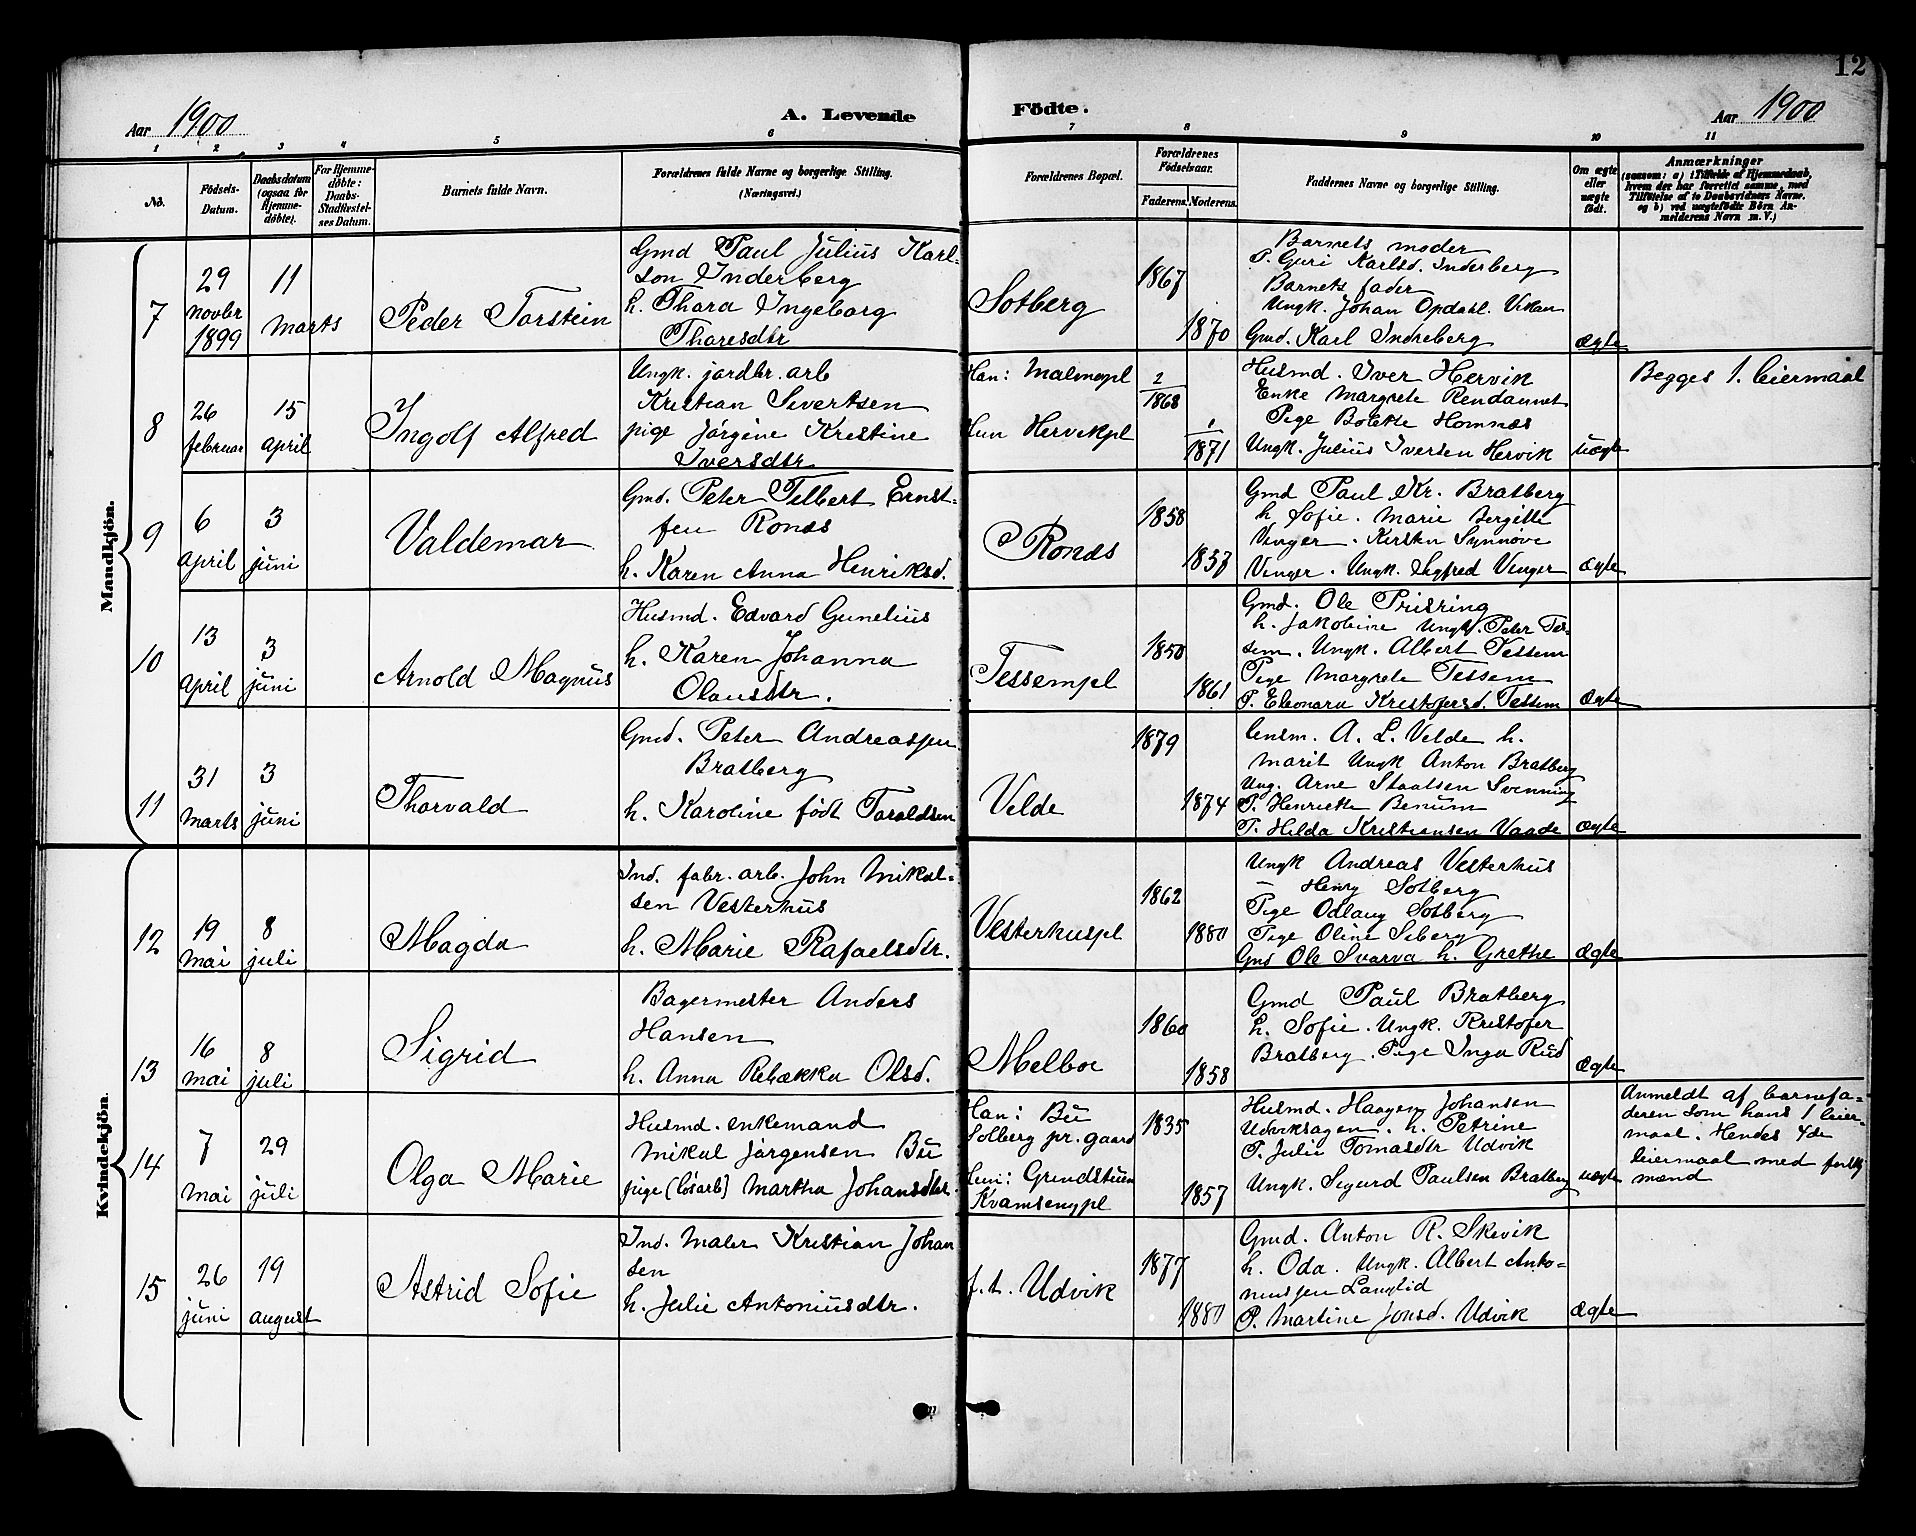 12
Aar 1900
A. Levende Födte.
Aar 1900
1 2 3 4 5 6 7 8 9 10 11
No.
Födsels-
Datum.
Daabsdatum
(ogsaa for
Hjemme-
döbte).
For Hjemme-
döbte:
Daabs-
Stadfæstel-
ses Datum.
Barnets fulde Navn.
Forældrenes fulde Navne og borgerlige Stilling.
(Næringsvei.)
Forældrenes Bopæl.
Forældrenes
Födselsaar.
Faderens. Moderens.
Faddernes Navne og borgerlige Stilling.
Om ægte
eller
uægte
födt.
Anmærkninger
(saasom: a) i Tilfælde af Hjemmedaab,
hvem der har forrettet samme, med
Tilföielse af to Daabsvidners Navne.
og b) ved uægtefödte Börn An-
melderens Navn m. V.)
Mandkjön.
7
29
novbr
1899
11
marts
Peder Torstein
Gmd Paul Julius Karl-
son Inderberg
h. Thora Ingeborg
Tharesdtr
Solberg
1867
1870
Barnets moder
P. Guri Karlsd. Inderberg
Barnets fader
Ungk. Johan Opdahl. Vikan
Gmd. Karl Inderberg
ægte
8
26
februar
15
april
Ingolf Alfred
Ungk. jordbr. arb
Kristian Sivertsen
pige Jörgine Kristine
Iversdtr
Han: Malmopl
Hun Hervikpl
2
1868
1
1871
Husmd. Iver Hervik
Enke Margrete Rendannet
Pige Bolette Homnæs
Ungk. Julius Iversen Hervik
uægte
Begges 1. leiermaal
9
6
april
3
juni
Valdemar
Gmd. Peter Telbert Ernst-
sen Ronæs
h. Karen Anna Henriksd.
Ronæs
1858
1857
Gmd Paul Kr. Bratberg
h Sofie. Marie Bergitte
Vinger. Kirsten Synnöve
Vinger. Ungk. Sigfred Vinger
ægte
10
13
april
3
juni
Arnold Magnus
Husmd. Edvard Gunelius
h. Karen Johanna
Olausdtr.
Tessempl
1850
1861
Gmd. Ole Trisring
h. Jakobine Ungk. Peter Tes-
sem. Ungk. Albert Tessem
Pige Margrete Tessem
P. Eleonora Kristofersd. Tessem
ægte
11
31
marts
3
juni
Thorvald
Gmd. Peter Andreassen
Bratberg
h. Karoline födt Taraldsen
Velde
1879
1874
Lensm. A. L. Velde h.
Marit Ungk Anton Bratberg
Ung. Arne Staalsen Svenning
P. Henriette Benum
P. Hilda Kristiansen Vaade
ægte
Kvindekjön.
12
19
mai
8
juli
Magda
Ind. fabr. arb. John Mikal-
sen Vesterhus
h. Marie Rafaelsdtr.
Vesterhuspl
1862
1880
Ungk Andreas Vesterhus
— Henry Solberg
Pige Odlaug Solberg
Pige Oline Siberg
Gmd Ole Svarva h. Grethe
ægte
13
16
mai
8
juli
Sigrid
Bagermester Anders
Hansen
h. Anna Rebækka Olsd.
Melboe
1860
1858
Gmd Paul Bratberg
h. Sofie. Ungk. Kristofer
Bratberg. Pige Inga Rud
ægte
14
7
mai
29
juli
Olga Marie
Husmd. enkemand
Mikal Jörgensen Bü
pige (lösarb) Martha Johansdtr.
Han: Bü
Solberg pr. gaard
Hun: Grundstuen
Kvamsengpl
1835
1857
Husmd. Haagen Johansen
Udviksagen. h. Petrine
P. Julie Tomasdtr Udvik
Ungk. Sigurd Paulsen Bratberg
uægte
Anmeldt af barnefa-
deren som hans 1 leier-
maal. Hendes 4de
leiermaal med forskj
mænd
15
26
juni
19
august
Astrid Sofie
Ind. Maler Kristian Johan
sen
h. Julie Antoniusdtr.
f. t. Udvik
1877
1880
Gmd. Anton R. Skevik
h. Oda. Ungk. Albert Anto-
niussen Langlid
P. Martine Jonsd. Udvik
ægte